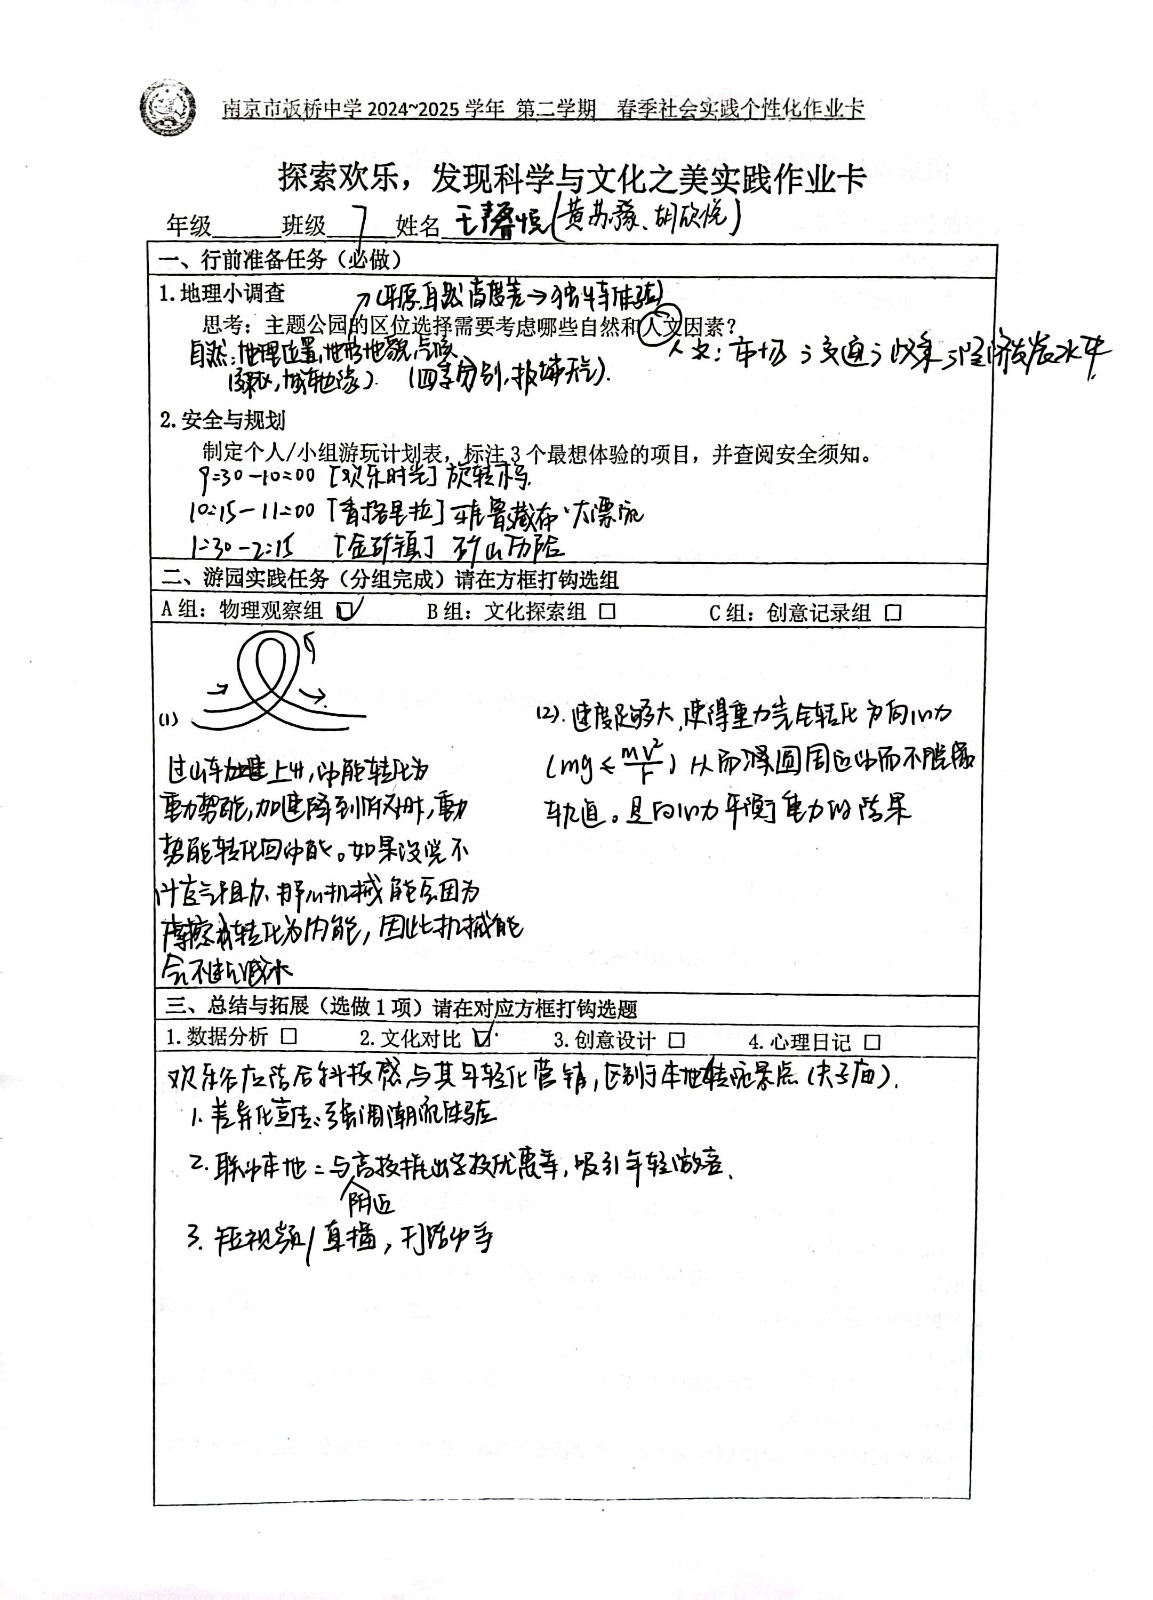 南京市板桥中学 2024~2025 学年 第二学期 春季社会实践个性化作业卡
探索欢乐，发现科学与文化之美实践作业卡
年级 班级 7 姓名 王馨悦(黄苏豫、胡欣悦)
一、行前准备任务（必做）
1.地理小调查
(平原,自然高度差→独特体验)
思考：主题公园的区位选择需要考虑哪些自然和人文因素？
自然：地理位置,地形地貌,气候
人文：市场；交通；政策；经济发展水平
(郊区,城市边缘). (四季分明,极端天气).
2.安全与规划
制定个人/小组游玩计划表，标注 3 个最想体验的项目，并查阅安全须知。
9:30-10:00 [欢乐时光] 旋转木马
10:15-11:00 [香格里拉] 雅鲁藏布·大漂流
1:30-2:15 [金矿镇] 矿山历险
二、游园实践任务（分组完成）请在方框打钩选组
A 组：物理观察组 ☑ B 组：文化探索组 □ C 组：创意记录组 □
(1)
过山车加速上升,动能转化为
重力势能,加速降到底时,重力
势能转化回动能。如果没说不
计空气阻力,那么机械能会因为
摩擦力转化为内能，因此机械能
会不断减小
(2).速度足够大,使得重力完全转化为向心力
(mg ≤ mv²/r) 从而做圆周运动而不脱离
轨道。是向心力平衡重力的结果
三、总结与拓展（选做 1 项）请在对应方框打钩选题
1.数据分析 □ 2.文化对比 ☑ 3.创意设计 □ 4.心理日记 □
欢乐谷应结合科技感与其年轻化营销,区别于本地传统景点(夫子庙).
1.差异化宣传:强调潮流体验
2.联动本地:与附近高校推出学校优惠等,吸引年轻游客.
3.短视频/直播，